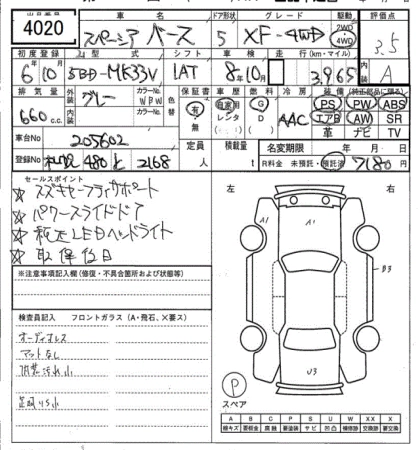 出品番号 4020
車名 スペーシア ベース
ドア形状 5
グレード XF-4WD
駆動 2WD 4WD
評価点 3.5
初度登録 6年10月
型式 5BD-MK33V
シフト IAT
車検 8年10月
走行(km・マイル) 3,965
A
排気量 660 c.c.
外装 グレー
内装
カラーNo. W P W
カラーNo.
色替
保証書 有・無
車歴 自家用 レンタ
燃料 G D
冷房 AAC
装備(純正部品に限る)
PS PW ABS
エアB AW SR
革 ナビ TV
車台No 205602
登録No 札幌 480 と 2168
定員 人
積載量 t
名変期限 年 月 日
R料金 未預託・預託済 7180 円
セールスポイント
☆ スズキセーフティサポート
☆ パワースライドドア
☆ 純正LEDヘッドライト
☆ 取保位日
※注意事項記入欄(修復・不具合箇所および状態等)
検査員記入 フロントガラス(A・飛石、×要ス)
オーディオレス
マットなし
内装汚れ小
左 右
A1 A1
B3
U3
P
スペア
A B C P S U W X XX X
線キズ 要板金 腐蝕 要塗装 サビ 凹凸 補修跡 要交換 交換跡 要交換